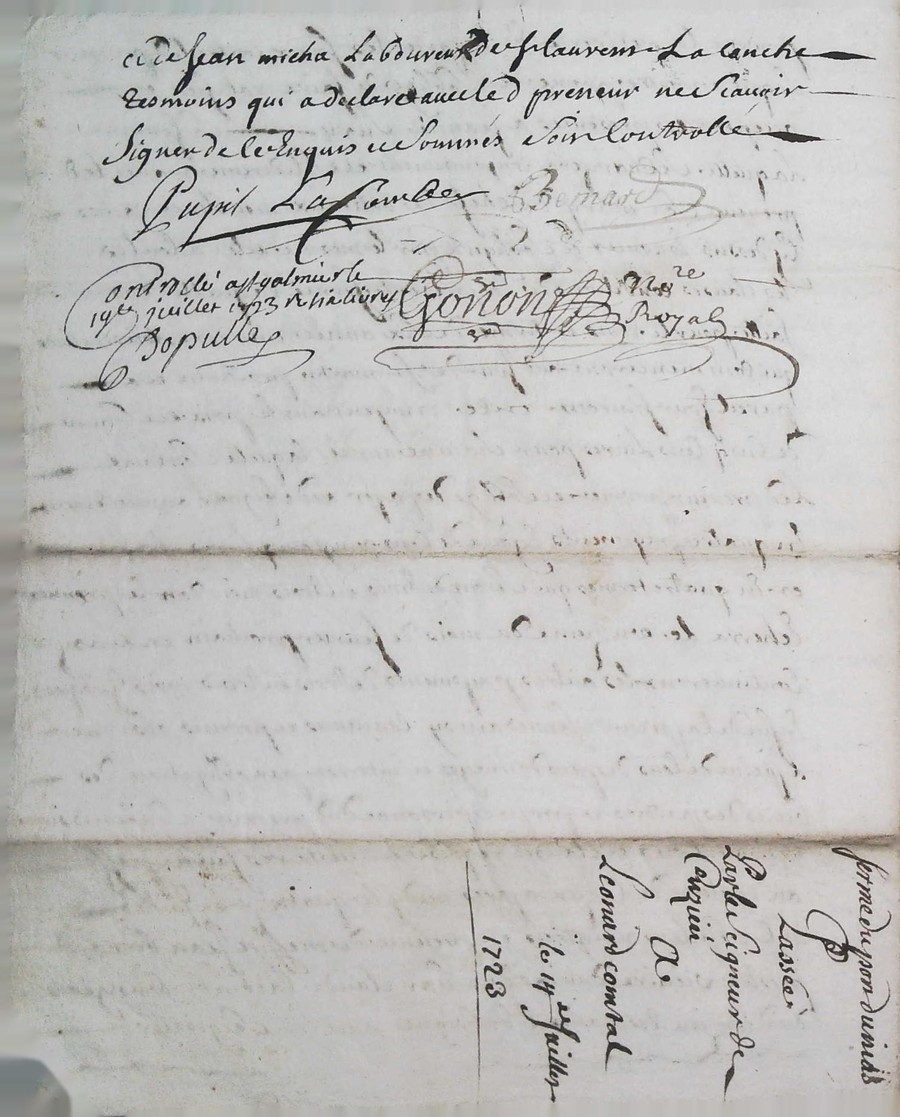 et de Jean micha Laboureur de st laurens La conche
tesmoins qui a declaré avec led preneur ne Scavoir
Signer de ce Enquis et Sommés Soit Controllé
Pupil La Combe Bernard
Controllé a st galmier le
19e juillet 1723
Gonon Nore
Royal
ferme du port du
Passée
P
Par le Seigneur de
Cuzieu
A
Leonard comtal
le 19 de Juillet
1723